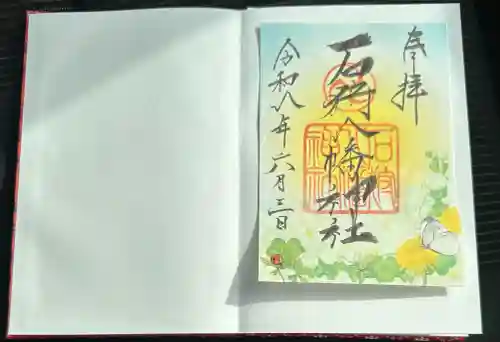 奉拝
石狩八幡神社
令和八年六月三日